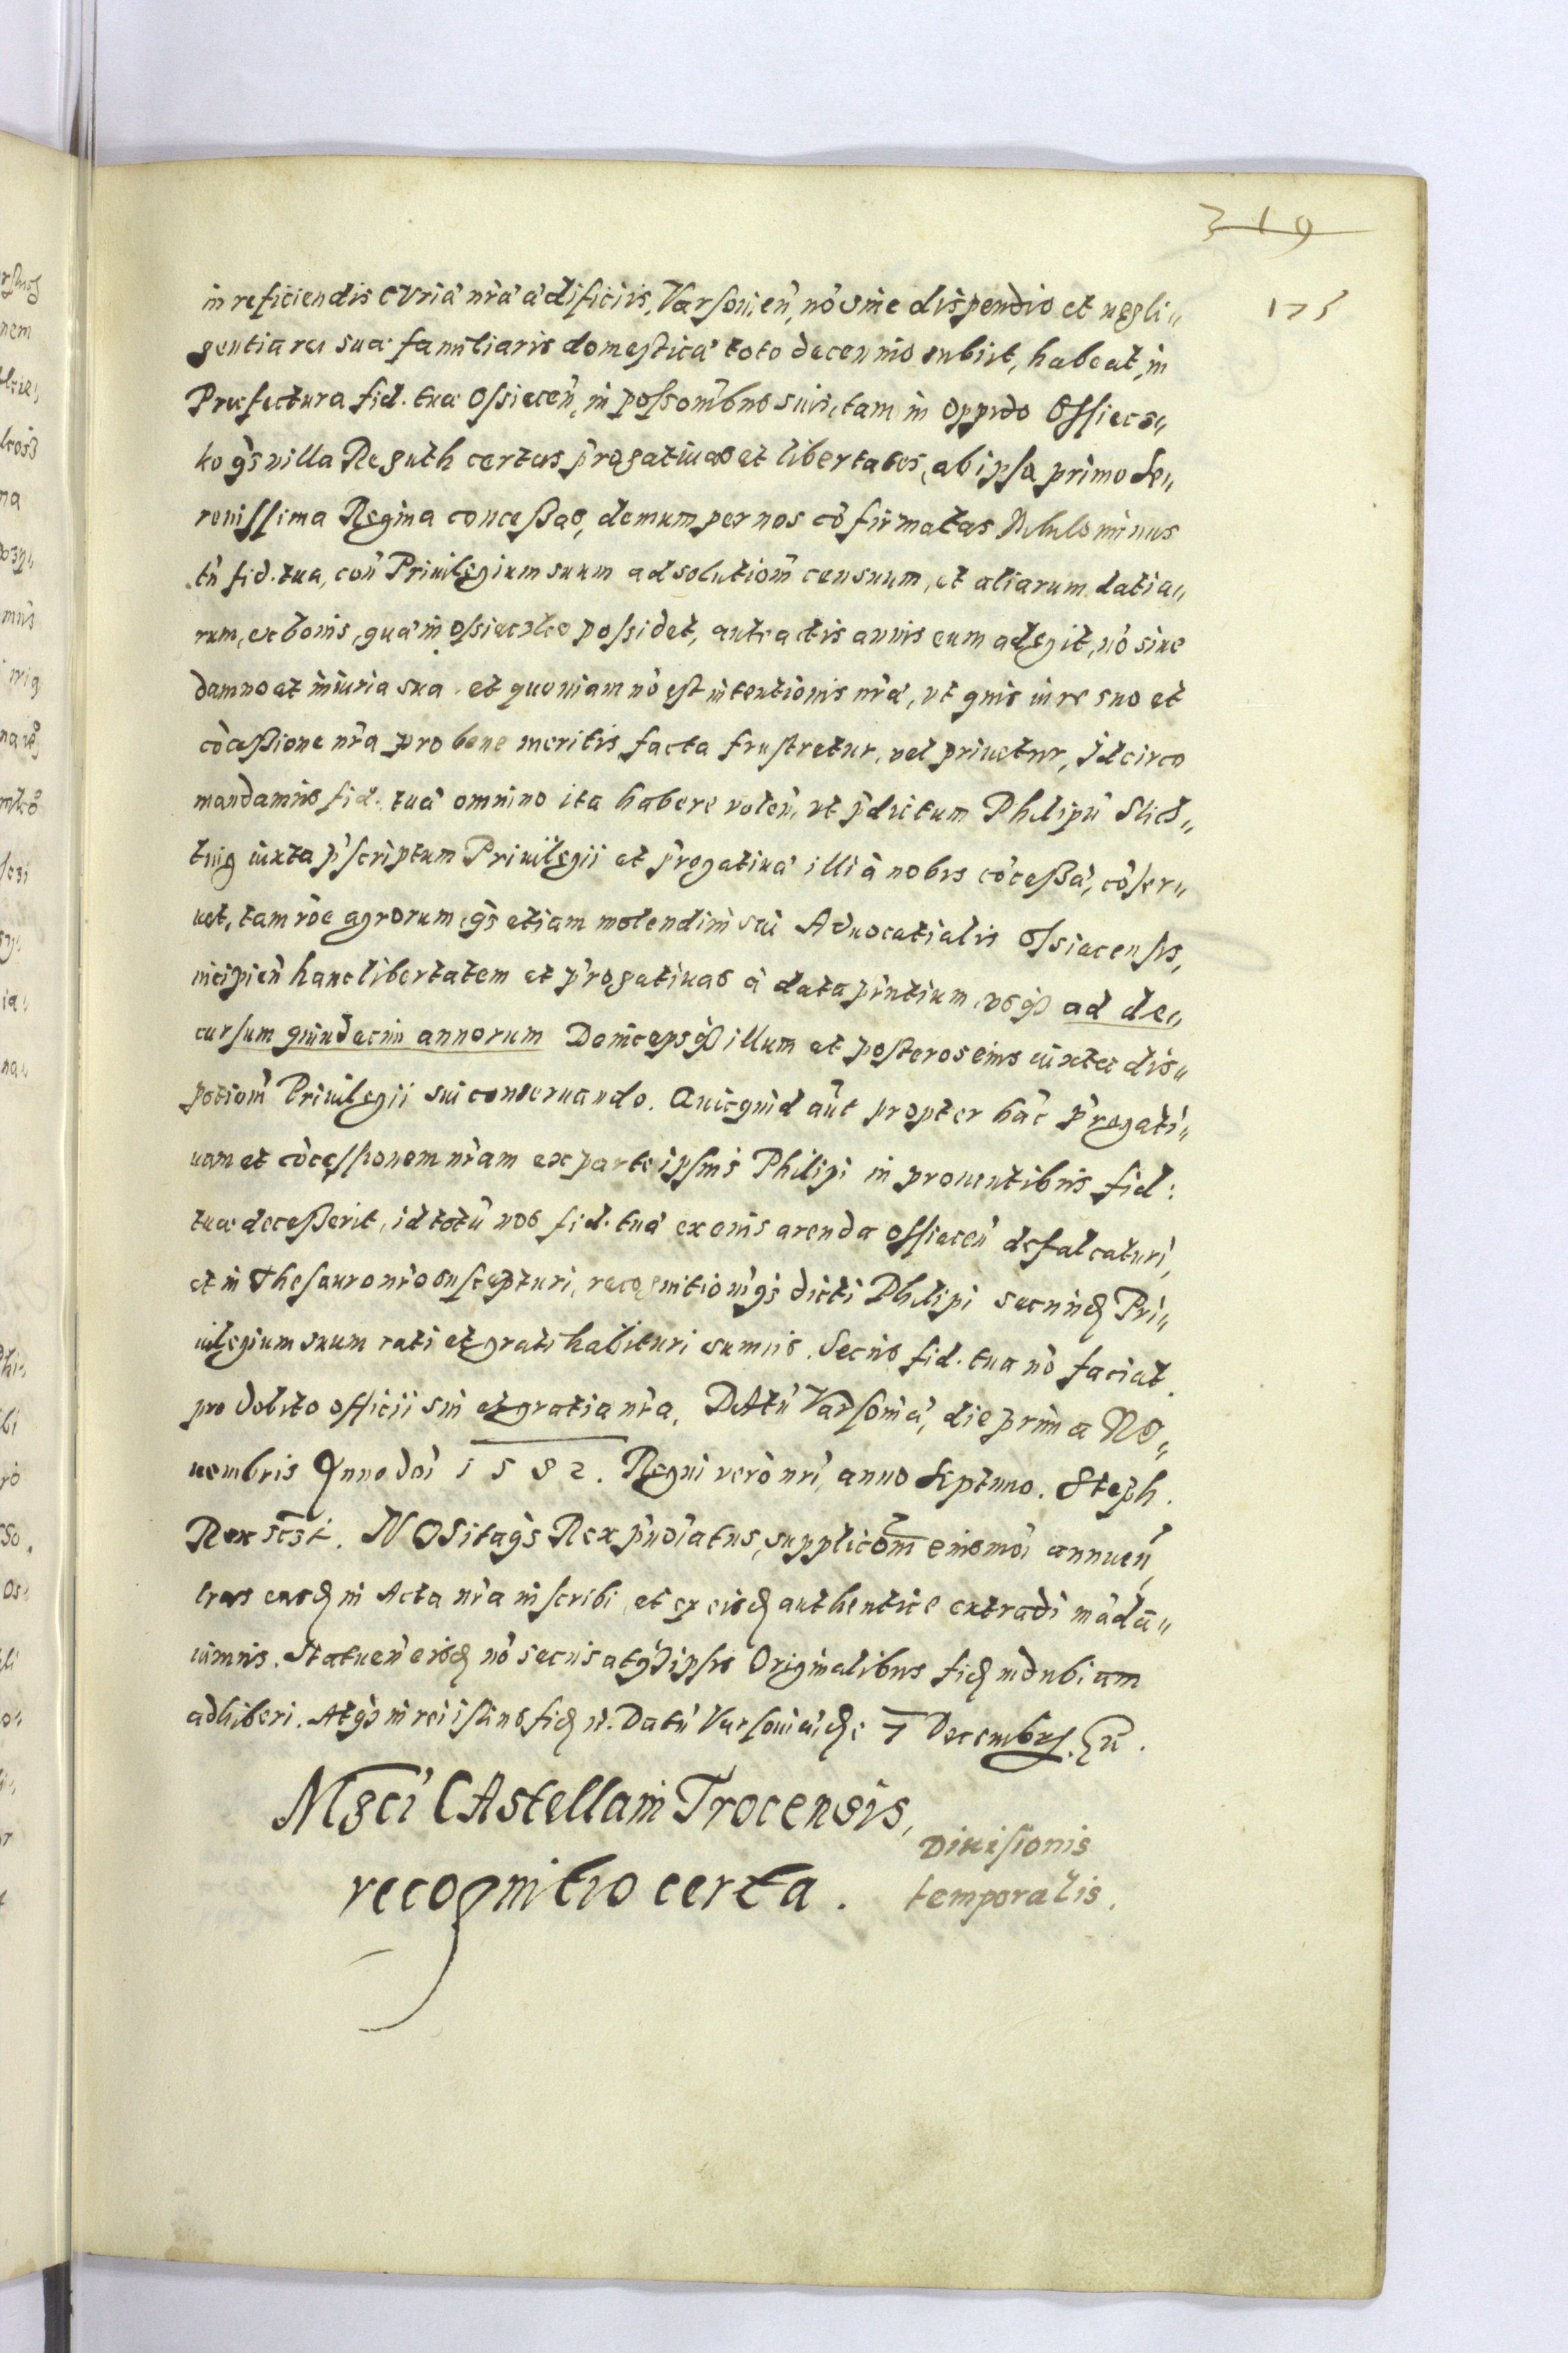 319
175
in reficiendis curiæ nræ ædificiis, Varsouien̄, nō sine dispendio et negli„
gentia rei suæ familiaris domesticæ toto decennio subiit, habeat, in
Præfectura fid. tuæ Ossiecen̄, in possōnibus suis, tam in Oppido Ossiecs„
ko qs villa Reguth certas p̄rogatiuas et libertates, ab ipsa primo Se„
renissima Regina concessas, demum per nos cōfirmatas Nihilominus
tn̄ fid. tua, con̄ Priuilegium suum ad solutiom̄ censuum, et aliarum datia„
rum, ex bonis, quæ in Ossiecsko possidet, anteactis annis eum adegit, nō sine
damno et iniuria sua. et quoniam nō est intentionis nræ, vt quis in re suo et
cōcessione nrā pro bene meritis facta frustretur, vel priuetur, Idcirco
mandamus fid. tuæ omnino ita habere volen̄, vt p̄dictum Philipū Slich„
ting iuxta p̄scriptum Priuilegii et p̄rogatiuæ illi à nobis cōcessæ, cōser„
uet, tam rōe agrorum, qs etiam molendini sui Aduocatialis Ossiecensis,
incipien̄ hanc libertatem et p̄rogatiuas à data p̄ntium, vsq̄ ad de„
cursum quindecim annorum Deincepsq̄ illum et posteros eius iuxta dis„
potiom̄ Priuilegii sui conseruando. Quicquid aūt propter hāc p̄rogati„
uam et cōcessionem nrām ex parte ipsius Philipi in prouentibus fid:
tuæ decesserit, id totū nos fid. tuæ ex onis arenda Ossiecen̄ defalcaturi,
et in Thesauro nrō suscepturi, recognitionīqs dicti Philipi secundū Pri„
uilegium suum rati et grati habituri sumus. Secus fid. tua nō faciat.
pro debito officii sui et gratia nrā. DAtū Varsouiæ, die prima NO„
uembris Anno doī 1582. Regni verò nrī, anno Septimo. Steph.
Rex scst. NOS itaqs Rex p̄noīatus, supplicōm eiusmōi annuen̄,
lrās easdē in Acta nrā inscribi, et ex eisdē authentice extradi mādā„
uimus. Statuen̄ eisdē nō secus atq̄ ipsis Originalibus fidē indubiam
adhiberi. Atqs in rei istius fidē n̄. Datū Varsouiæ, de 7 Decembris. Eū.
Mgci CAstellani Trocensis,
recognitio certa.
Diuisionis
temporalis.